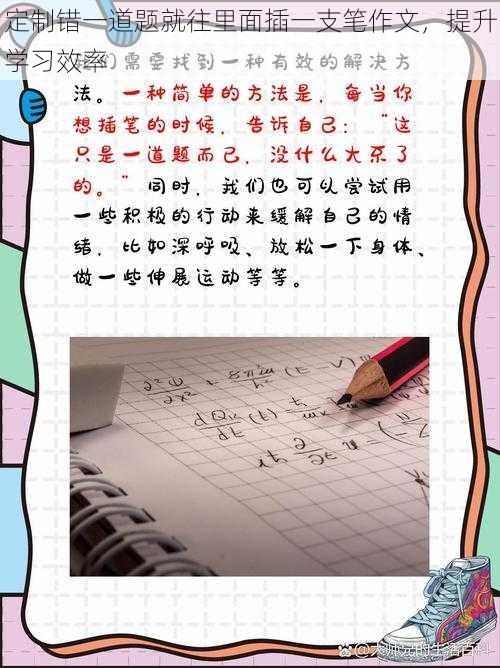 定制错一道题就往里面插一支笔作文，提升
学习效率
我们需要找到一种有效的解决方
法。一种简单的方法是，每当你
想插笔的时候，告诉自己：“这
只是一道题而已，没什么大不了
的。”同时，我们也可以尝试用
一些积极的行动来缓解自己的情
绪，比如深呼吸、放松一下身体、
做一些伸展运动等等。
@大师兄的生活百科